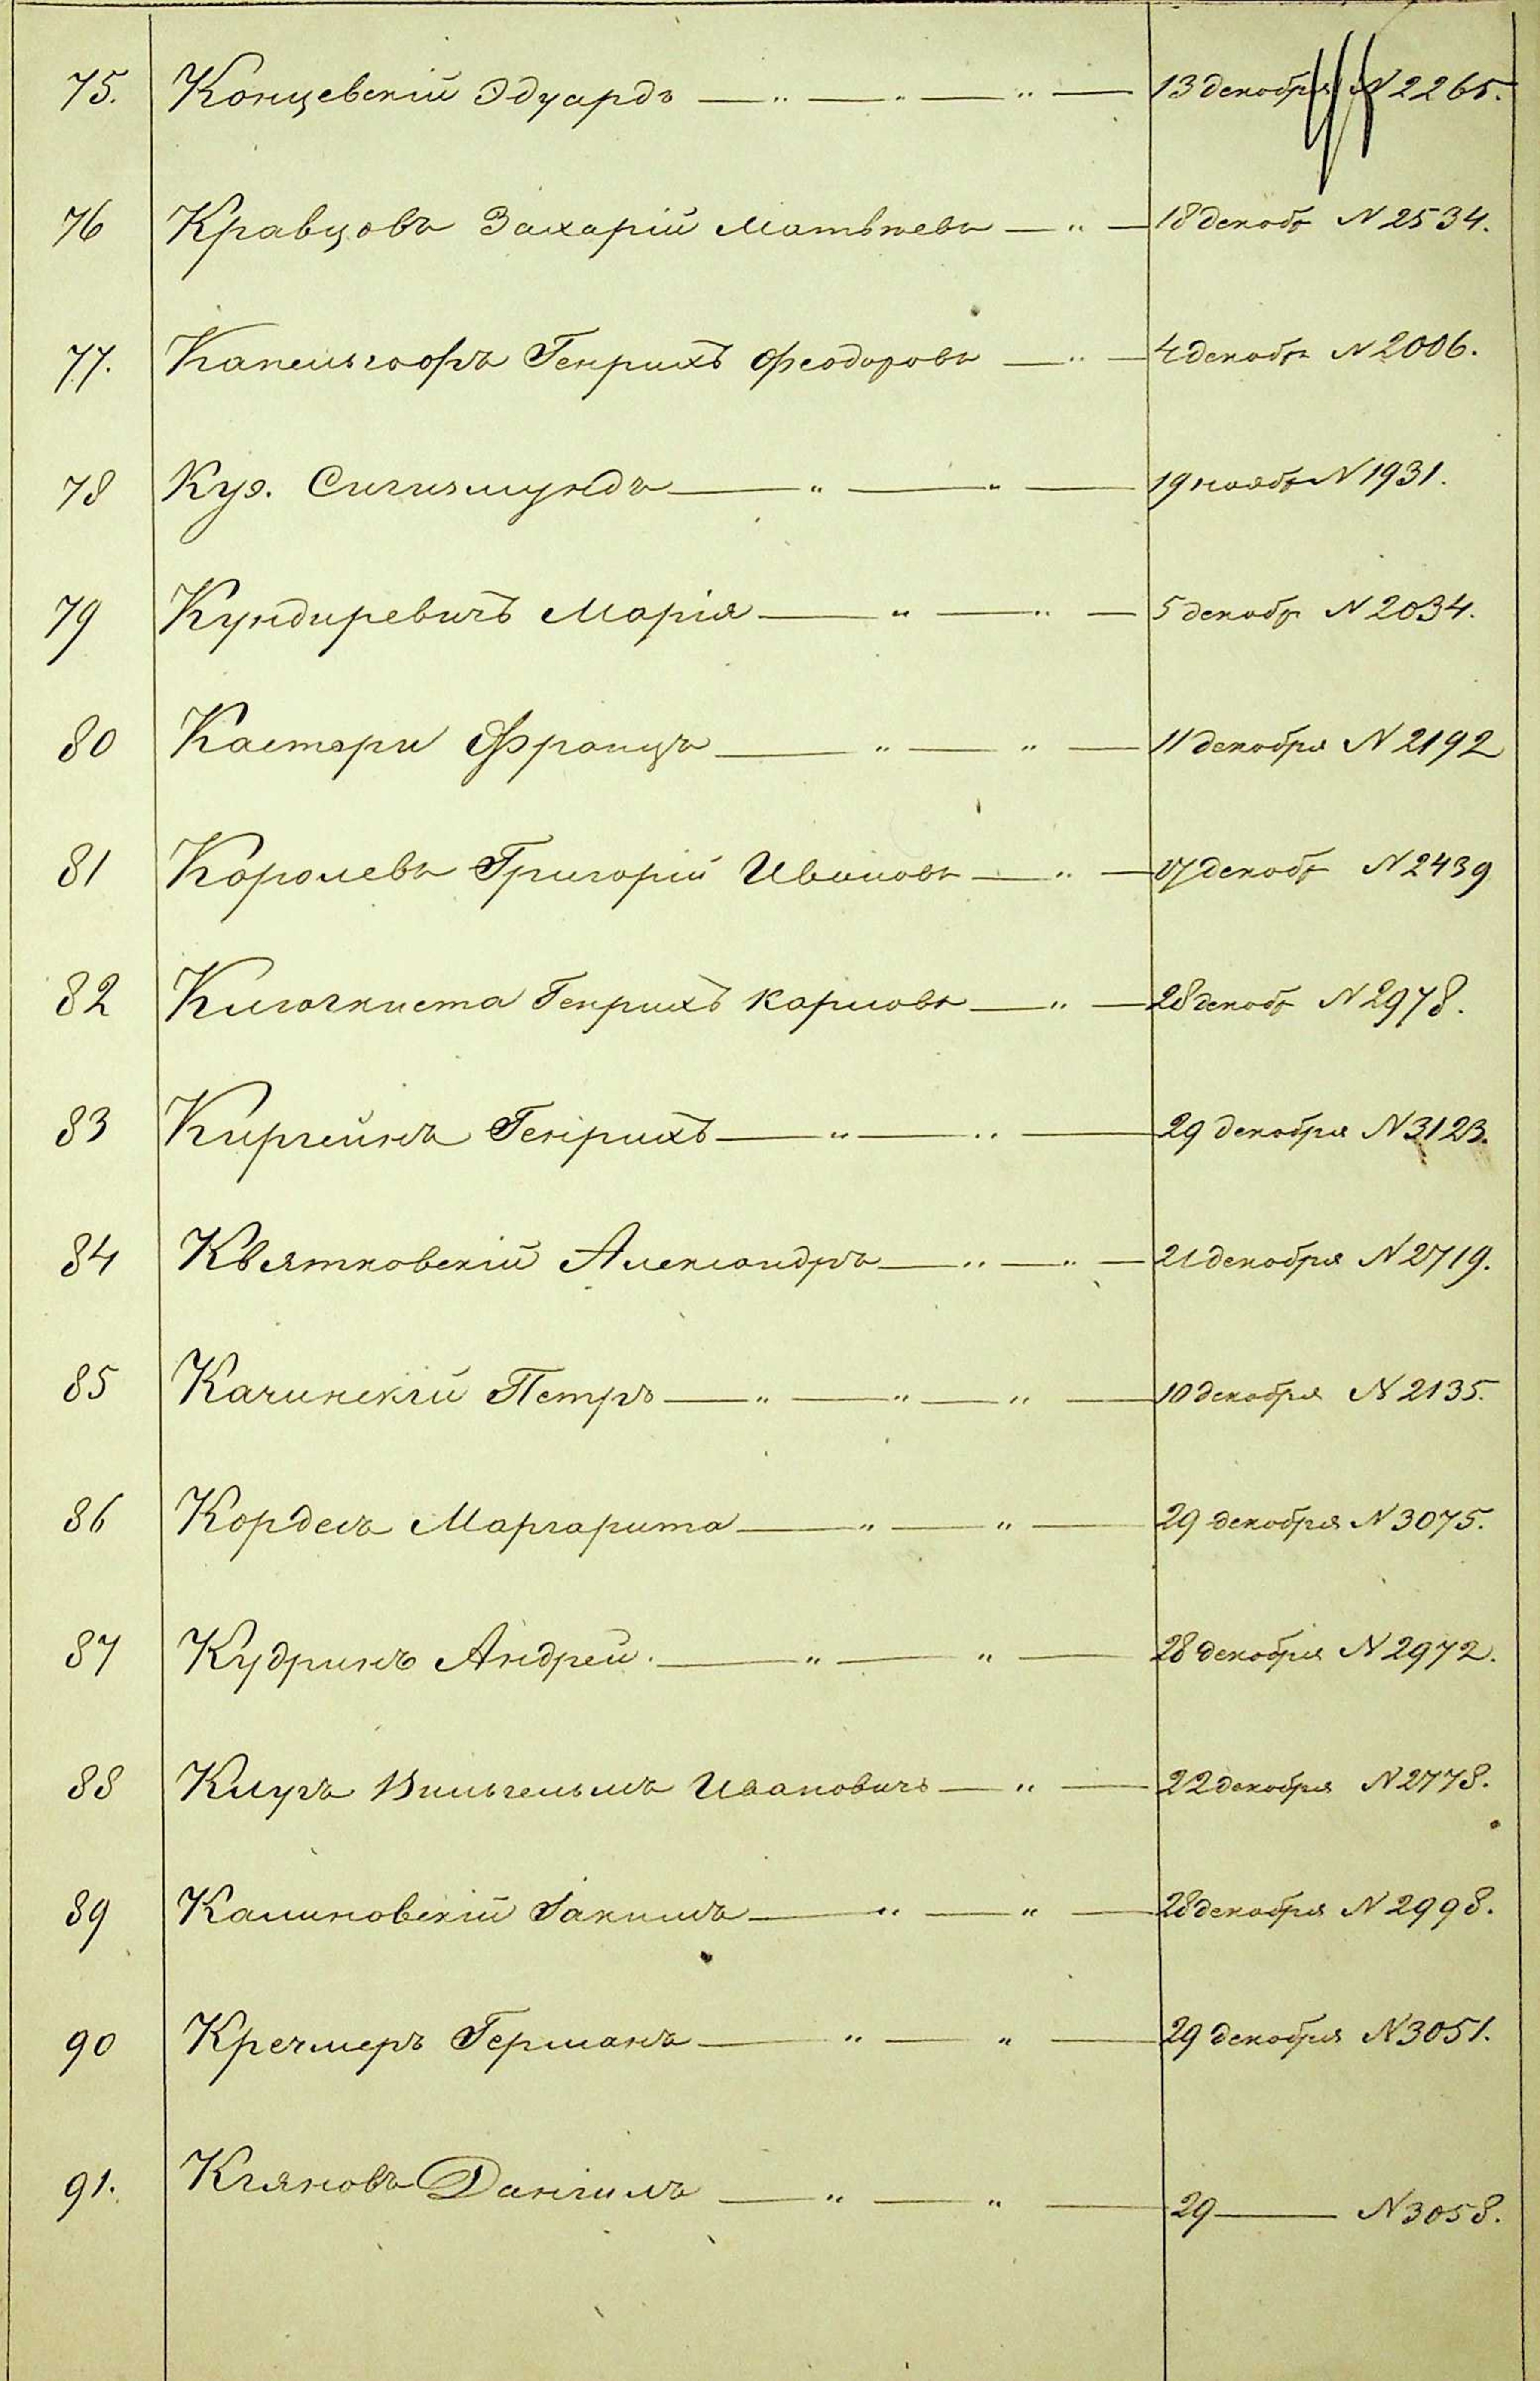 75. Концевскій Эдуардъ — „ — „ — „ — 13 декабря N 2265.
76 Кравцовъ Захарій Матвѣевъ — „ — 18 декабр N 2534.
77. Капельгофъ Генрихъ Феодоровъ — „ — 4 декабр N 2006.
78 Куэ. Сигизмундъ — „ — „ — 19 ноябр N 1931.
79 Кундиревичъ Марія — „ — „ — 5 декабр N 2034.
80 Кастэри Францъ — „ — „ — 11 декабря N 2192
81 Королевъ Григорій Ивановъ — „ — 17 декабр N 2439
82 Генрихъ Карловъ — „ — 28 декабр N 2978.
83 Киргейнъ Генрихъ — „ — „ — 29 декабря N 3123.
84 Квятковскій Александръ — „ — „ — 21 декабря N 2719.
85 Качинскій Петръ — „ — „ — „ — 10 декабря N 2135.
86 Корделъ Маргарита — „ — „ — 29 декабря N 3075.
87 Кудринъ Андрей. — „ — „ — 28 декабря N 2972.
88 Клугъ Вильгельмъ Ивановичъ — „ — 22 декабря N 2778.
89 Калиновскій Іакимъ — „ — „ — 28 декабря N 2998.
90 Кречмеръ Германъ — „ — „ — 29 декабря N 3051.
91. Даніилъ — „ — „ — 29 — N 3058.